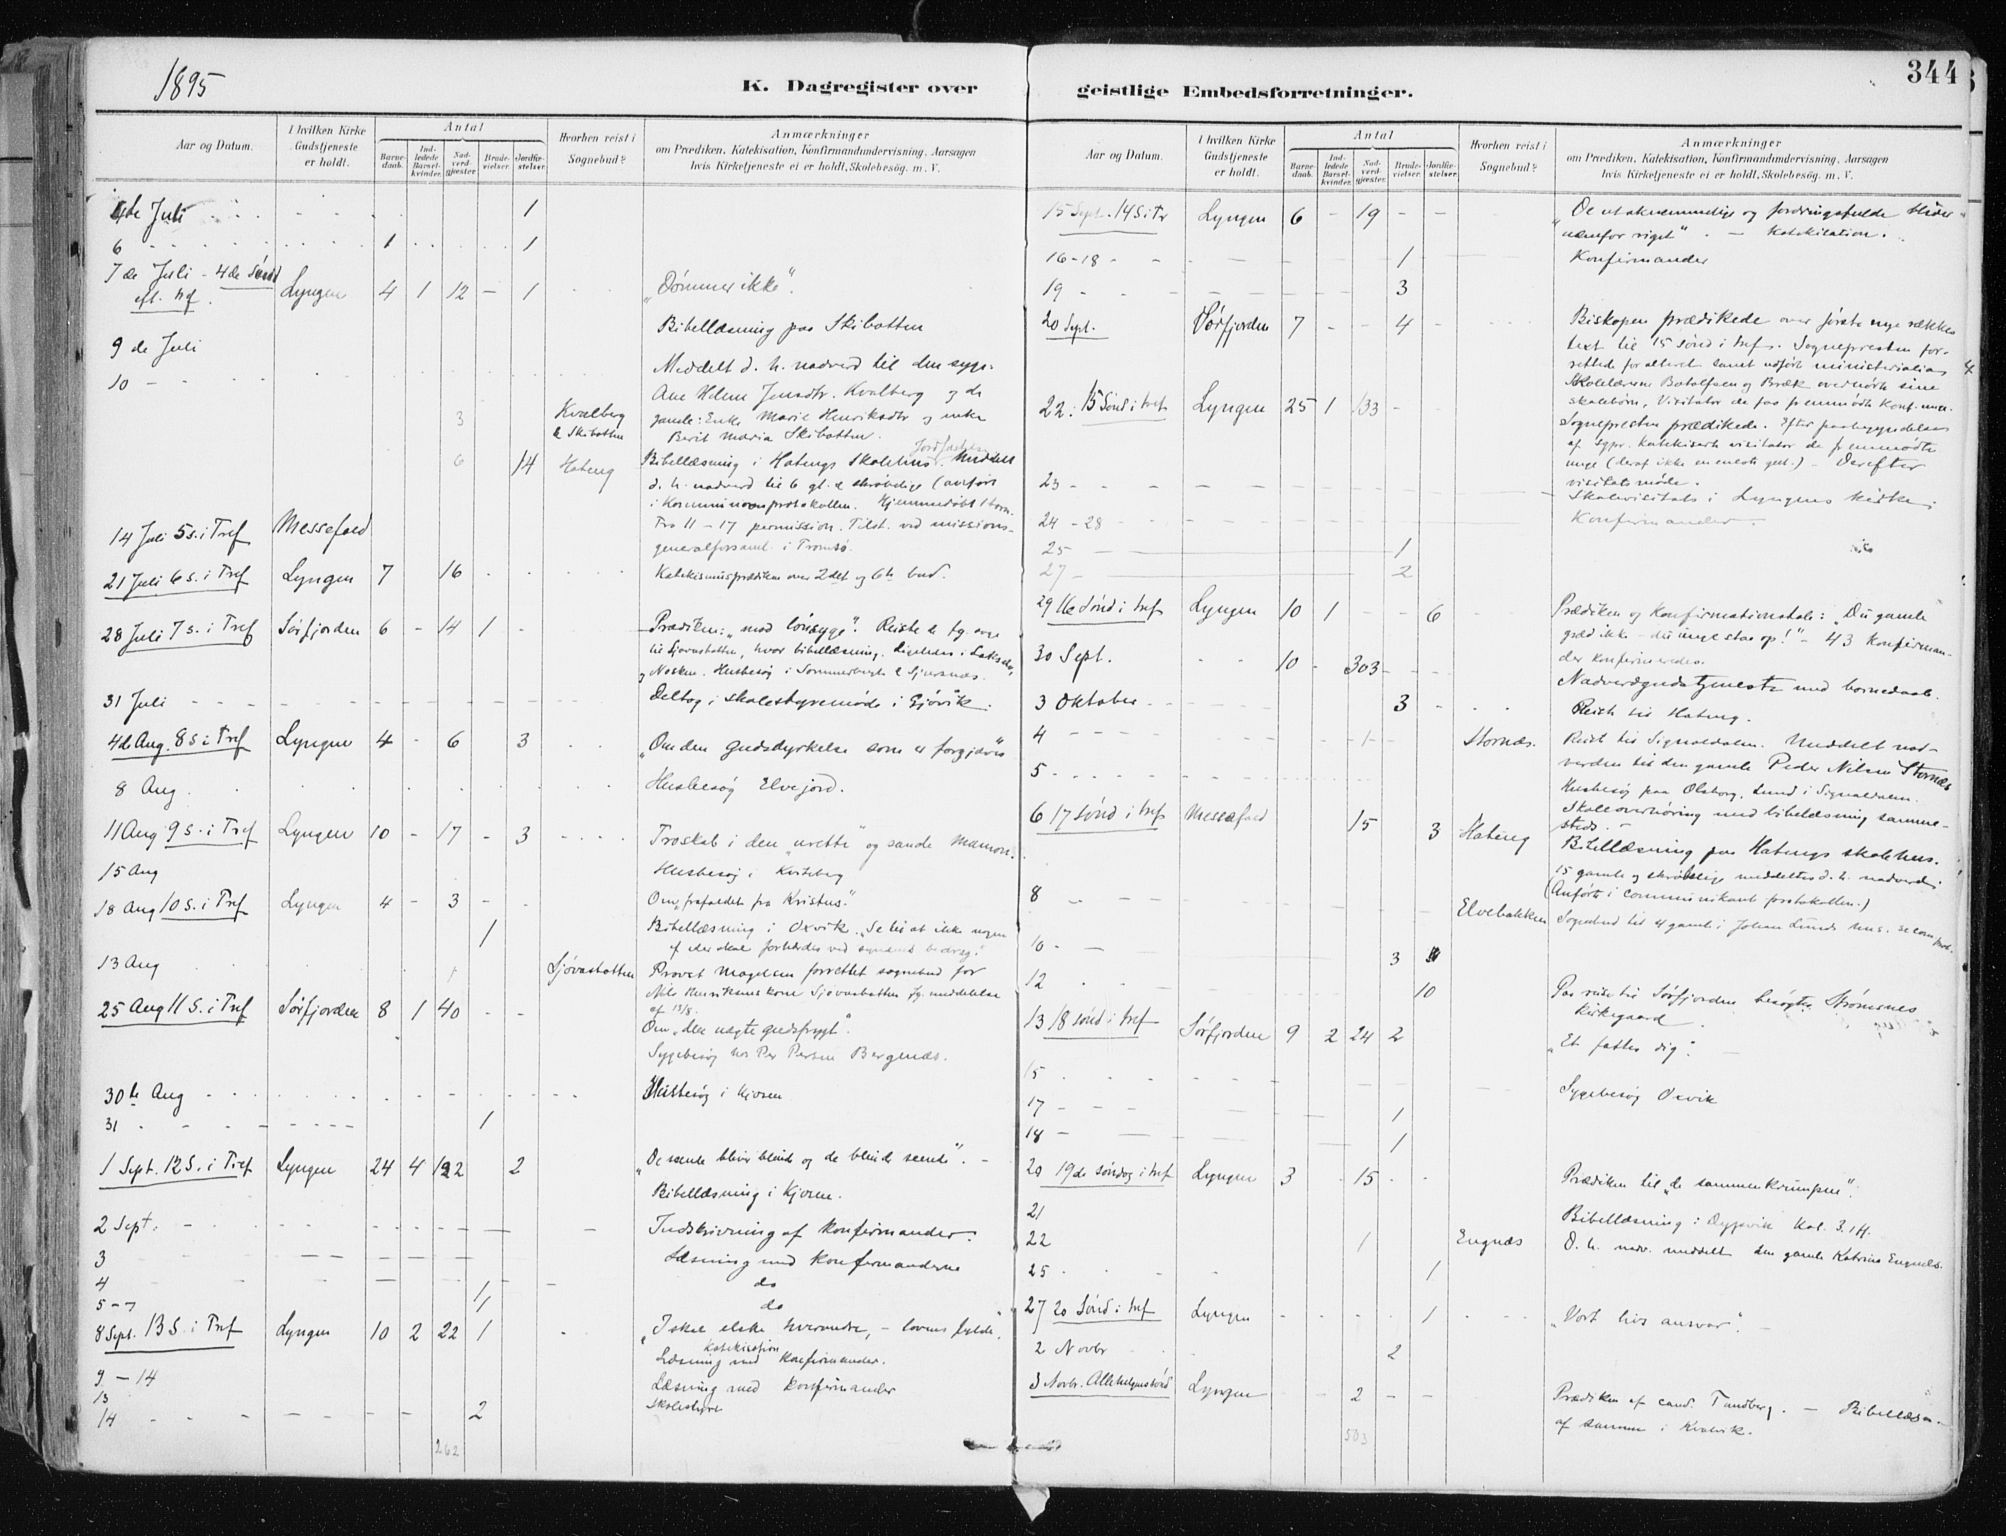 1895
K. Dagregister over geistlige Embedsforretninger.
344
Aar og Datum.
I hvilken Kirke Gudstjeneste er holdt.
Antal
Barnedaab.
Indledede Barselkvinder.
Nadverdgjæster.
Brudevielser.
Jordfæstelser.
Hvorhen reist i Sognebud?
Anmærkninger
om Prædiken, Katekisation, Konfirmandundervisning, Aarsagen
hvis Kirketjeneste ei er holdt, Skolebesøg. m. V.
4de Juli 1
6 1 1
7de Juli - 4de Sønd
eft. trf. Lyngen 4 1 12 - 1 "Dømmer ikke".
9de Juli Bibellæsning paa Skibotten
10 - Meddelt d. h. nadverd til den syge
Ane Helene Jensdtr. Kvalberg og de
3 Kvalberg gamle: Enke Marie Henriksdtr og enke
& Skibotten Berit Maria Skibotten.
6 14 Hateng Bibellæsning i Hatengs Skolehus. Jordfæstelse Meddelt
d. h. nadverd til 6 gl. & skrøbelige (anført
i Kommunionprotokollen. Hjemmedøbt 1 barn.
14 Juli 5 s. i Tref Messefald Fra 11 - 17 permission. Tilst. ved missions-
generalforsaml. i Tromsø.
21 Juli 6 s. i Tref Lyngen 7 16 Katekismusprædiken over 2det og 6te bud.
28 Juli 7 s. i Tref Sørfjorden 6 - 14 1 - Prædiken: "mod lønsyge". Reiste
til Sjøvasbotten, hvor bibellæsning.
Husbesøg i Sommerbugt & Sjursnæs.
31 Juli Deltog i skolestyremøde i Gjøvik.
4de Aug. 8 s i Tref Lyngen 4 - 6 3 "Om den gudsdyrkelse som er forgjæves
8 Aug Husbesøg Elvejord.
11 Aug 9 s. i Tref Lyngen 10 - 17 - 3 Troskab i den "urette" og sande Mamon.
15 Aug Husbesøg i
18 Aug 10 s. i Tref Lyngen 4 - 3 - Om "frafaldet fra Kristus."
1 Bibellæsning i Oxvik. "Se til at ikke nogen
af eder skal forhærdes ved syndens bedrag."
13 Aug 1 Sjøvasbotten Provst Magelsen forrettet sognebud for
Nils Henriksens kone Sjøvasbotten fg. meddelelse
af 13/8.
25 Aug 11 S. i Tref Sørfjorden 8 1 40 - - Om "den ægte gudsfrygt".
Sygebesøg hos Per Persen Bergenæs.
30te Aug Husbesøg i Kjosen
31 1
1 Sept. 12 S. i Tref Lyngen 24 4 122 2 "De seende blive blinde og de blinde seende". -
Bibellæsning i Kjosen.
2 Sept. Indskrivning af konfirmander.
3 Læsning med konfirmanderne
4 1 do
5-7 1 do
8 Sept. 13 S. i Tref Lyngen 10 2 22 1 "I skal elske hverandre, - lovens fylde".
Katekisation
Læsning med konfirmander.
9 - 14 Læsning med konfirmander
13
14 2 Skolestyre
262
Aar og Datum.
I hvilken Kirke Gudstjeneste er holdt.
Antal
Barnedaab.
Indledede Barselkvinder.
Nadverdgjæster.
Brudevielser.
Jordfæstelser.
Hvorhen reist i Sognebud?
Anmærkninger
om Prædiken, Katekisation, Konfirmandundervisning, Aarsagen
hvis Kirketjeneste ei er holdt, Skolebesøg. m. V.
15 Sept. 14 S i Tr Lyngen 6 - 19 - - - "De utaknemmelige og fordringsfulde
udenfor riget". - Katekisation.
16-18 1 Konfirmander
19 3
20 Sept. Sørfjorden 7 - - 4 - Biskopen prædikede over første nye rækkes
text til 15 sønd i tref. Sognepresten for-
rettede for alteret samt udførte ministerialia
Skolelærerne Botolfsen og Bræk overhørte sine
22. 15 Sønd i tref Lyngen 25 1 133 - skolebørn. Visitator de paa fremmødte
Sognepresten prædikede. Efter paabegyndelse
af sgpr. katekiserte visitator de fremmødte
unge (deraf ikke en eneste gut.) - Derefter
visitatsmøde.
23 - Skolevisitats i Lyngens kirke.
24 - 28 Konfirmander.
25 1
27 2
29 16 Sønd i tref Lyngen 10 1 - - 6 Prædiken og konfirmationstale: "Du gamle
græd ikke - du unge staa op!" - 43 konfirman-
der konfirmeredes.
30 Sept. 10 - 303 - - Nadverdgudstjeneste med barnedaab.
3 Oktober 3 - Reist til Hateng.
4 1 Stornæs. Reist til Signaldalen. Meddelt nad-
verden til den gamle Peder Nilsen Stornæs
5 Husbesøg paa Olsborg, Lund i Signaldalen.
Skoleoverhøring med bibellæsning samme-
steds. -
6 17 sønd i tref Messefald 15 3 Hateng Bibellæsning paa Hatengs skolehus.
15 gamle og skrøbelige meddeltes d. h. nadverd.
(Anført i communikantprotokollen.)
8 Elvebakken Sognebud til 4 gamle i Johan Lunds hus.
10 3
12 10 Paa reise til Sørfjorden besøgtes Strømsnes
Kirkegaard
13 18 sønd i tref Sørfjorden 9 2 24 2 "Et fattes dig".
15 Sygebesøg Oxvik
17 1
18 1
20 19de søndag i tref Lyngen 3 15 Prædiken til "de sammenkrumpne".
21 Bibellæsning i Kol. 3.14.
22 1 Engnæs D. h. nadv. meddelt den gamle Katrine Engnæs.
25 1
27 20 Sønd i tref Lyngen 1 "Vort livs ansvar". -
2 Novbr 2
3 Novbr. Allehelgensønd Lyngen - - 2 - - Prædiken af cand. Tandberg. - Bibellæsn.
af samme i Kvalvik.
503